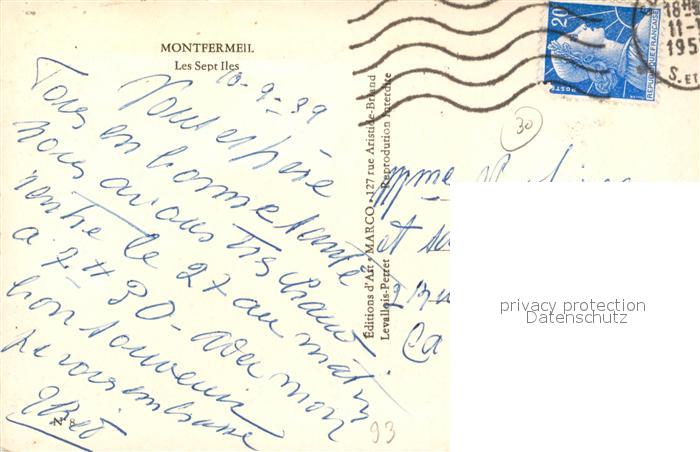 MONTFERMEIL
Les Sept Iles
10-9-59
Vous espère
Tous en bonne santé
nous avons très chaud.
rentre le 27 au matin
a 7 H 30 - avec mon
bon souvenir
je vous embrasse
N° 8
Editions d'Art - MARCO - 127 rue Aristide-Briand
Levallois-Perret
Reprodution Interdite
20
POSTES
REPUBLIQUE FRANÇAISE
18H
11-
195
S. ET
30
Mme
et
Ca
93
privacy protection
Datenschutz